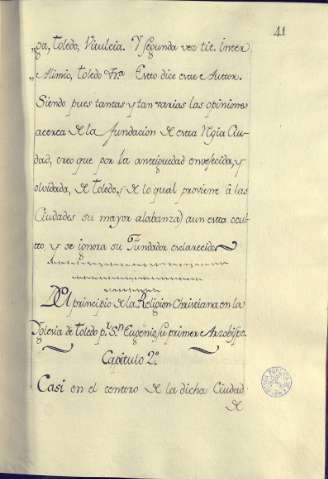 41
ga, toledo, Viuleia. Y segunda vez tie. inter
e Alimio, toledo Vrª Esto dice este e Autor.
Siendo pues tantas y tan varias las opiniones
acerca de la fundacion de esta Regia Ciu-
dad, creo que por la antiguedad envejecida, y
olvidada, de toledo, (de lo qual proviene â las
Ciudades su mayor alabanza) aun esta ocul-
to, y se ignora su Fundador esclarecido
Del principio de la Religion Christiana en la
Iglesia de toledo pr. Sn. Eugenio, su primer Arzobispo.
Capitulo 2º.
Casi en el centero de la dicha Ciudad
de